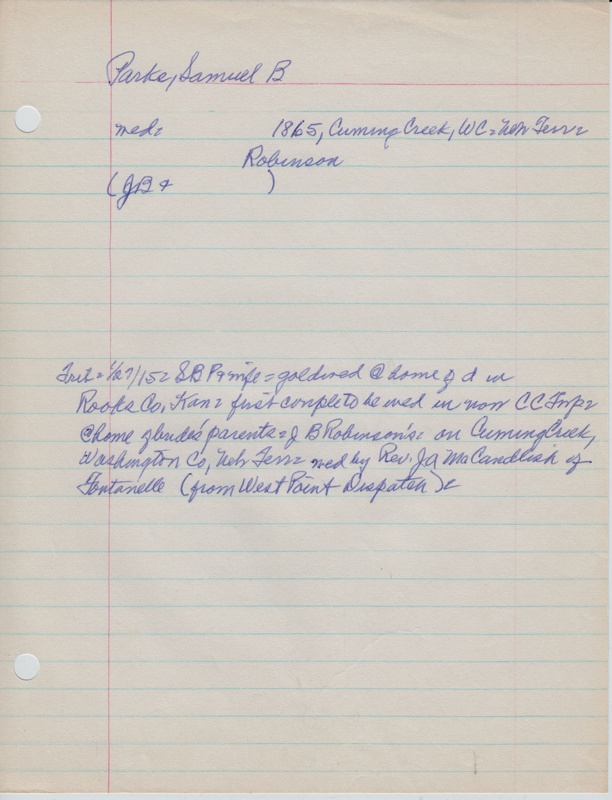 Parks, Samuel B
med= 1865, Cuming Creek, WC= Neb Terr=
Robinson
(JB & )
Trib= 1/27/15= SB P & wife= goldwed @ home of d in
Rooks Co, Kan= first couple to be wed in now CC Twp=
@ home of brides' parents= J B Robinson's= on Cuming Creek,
Washington Co, Neb Terr= med by Rev. JA McCandlish of
Fontanelle (from West Point Dispatch)=